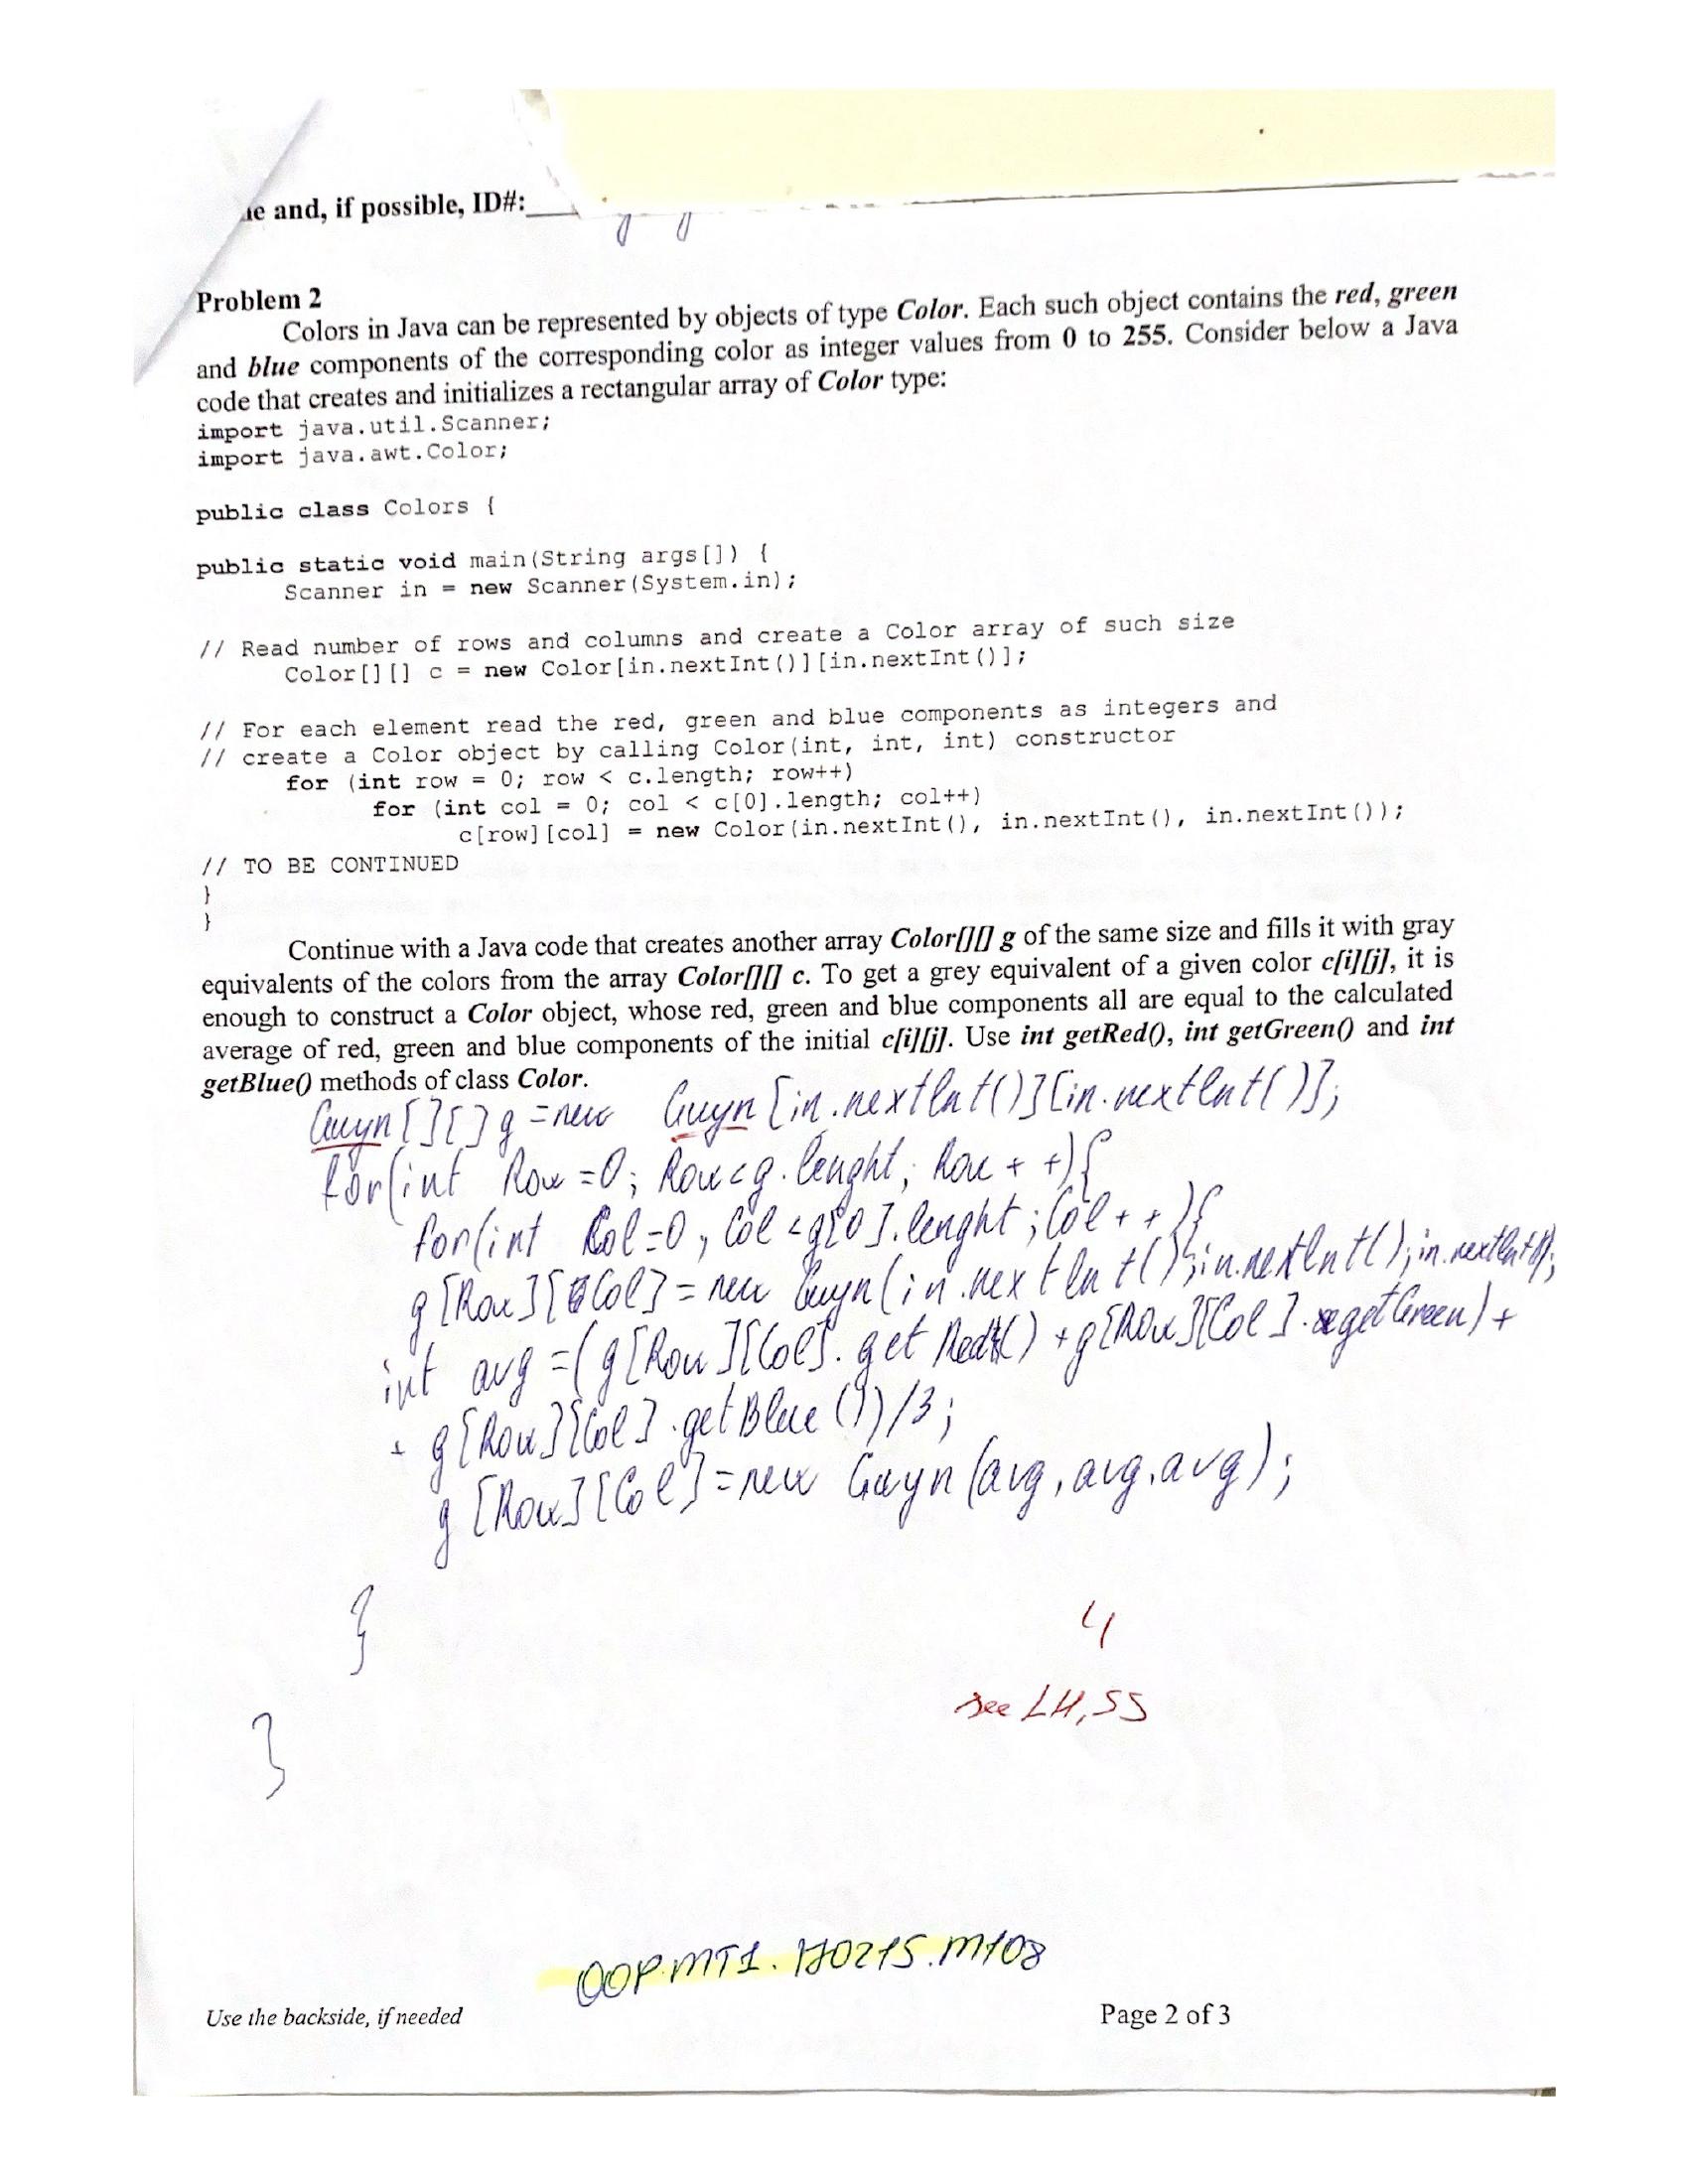 e and, if possible, ID#:
Problem 2
Colors in Java can be represented by objects of type Color. Each such object contains the red, green
and blue components of the corresponding color as integer values from 0 to 255. Consider below a Java
code that creates and initializes a rectangular array of Color type:
import java.util.Scanner;
import java.awt.Color;
public class Colors {
public static void main(String args[]) {
Scanner in = new Scanner(System.in);
// Read number of rows and columns and create a Color array of such size
Color[][] c = new Color[in.nextInt()][in.nextInt()];
// For each element read the red, green and blue components as integers and
// create a Color object by calling Color(int, int, int) constructor
for (int row = 0; row < c.length; row++)
for (int col = 0; col < c[0].length; col++)
c[row][col] = new Color(in.nextInt(), in.nextInt(), in.nextInt());
// TO BE CONTINUED
}
}
Continue with a Java code that creates another array Color[][] g of the same size and fills it with gray
equivalents of the colors from the array Color[][] c. To get a grey equivalent of a given color c[i][j], it is
enough to construct a Color object, whose red, green and blue components all are equal to the calculated
average of red, green and blue components of the initial c[i][j]. Use int getRed(), int getGreen() and int
getBlue() methods of class Color.
[][] g = new [in.nextInt()][in.nextInt()];
for(int Row =0; Row<g.lenght; Row + +){
for(int Col=0, Col <g[0].lenght; Col + +){
g[Row][Col] = new (in.nextInt();in.nextInt();in.nextInt());
int avg =(g[Row][Col].getRed() +g[Row][Col].getGreen) +
+ g[Row][Col].getBlue())/3;
g[Row][Col]=new (avg, avg, avg);
}
4
see LH, SS
}
OOP.MT1.170215.M108
Use the backside, if needed
Page 2 of 3